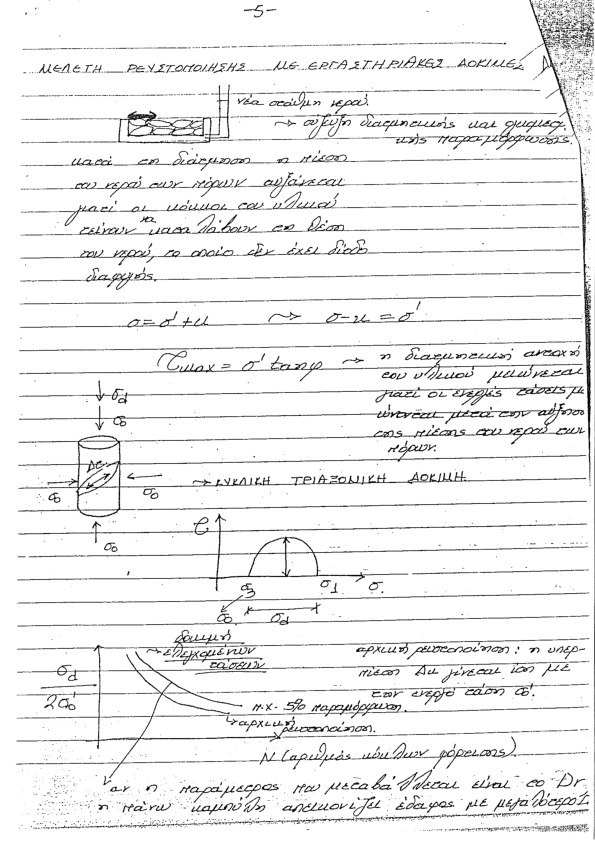 -5-
ΜΕΛΕΤΗ ΡΕΥΣΤΟΠΟΙΗΣΗΣ ΜΕ ΕΡΓΑΣΤΗΡΙΑΚΕΣ ΔΟΚΙΜΕΣ
νέα στάθμη νερού.
→ σύζευξη διατμητικής και
κής παραμόρφωσης.
κατά τη διάτμηση η πίεση
του νερού των πόρων αυξάνεται
γιατί οι κόκκοι του υλικού
τείνουν να καταλάβουν τη θέση
του νερού, το οποίο δεν έχει δίοδο
διαφυγής.
σ=σ'+u → σ-u=σ'
τmax = σ' tanφ → η διατμητική αντοχή
του υλικού μειώνεται
γιατί οι ενεργές τάσεις μ
ώνονται μετά την αύξηση
της πίεσης του νερού των
πόρων.
σd
σο
Δτ
σο σο → ΚΥΚΛΙΚΗ ΤΡΙΑΞΟΝΙΚΗ ΔΟΚΙΜΗ.
σο
τ
σ3 σ1 σ.
σο σd
δοκιμή
ελεγχομένων
τάσεων
αρχική ρευστοποίηση: η υπερ-
πίεση Δu γίνεται ίση με
τον ενεργό τάση σο'.
σd
2σο'
π.χ. 5% παραμόρφωση.
αρχική
ρευστοποίηση.
N (αριθμός κύκλων φόρτισης).
αν η παράμετρος που μεταβάλλεται είναι το Dr
η πάνω καμπύλη απεικονίζει έδαφος με μεγαλύτερο